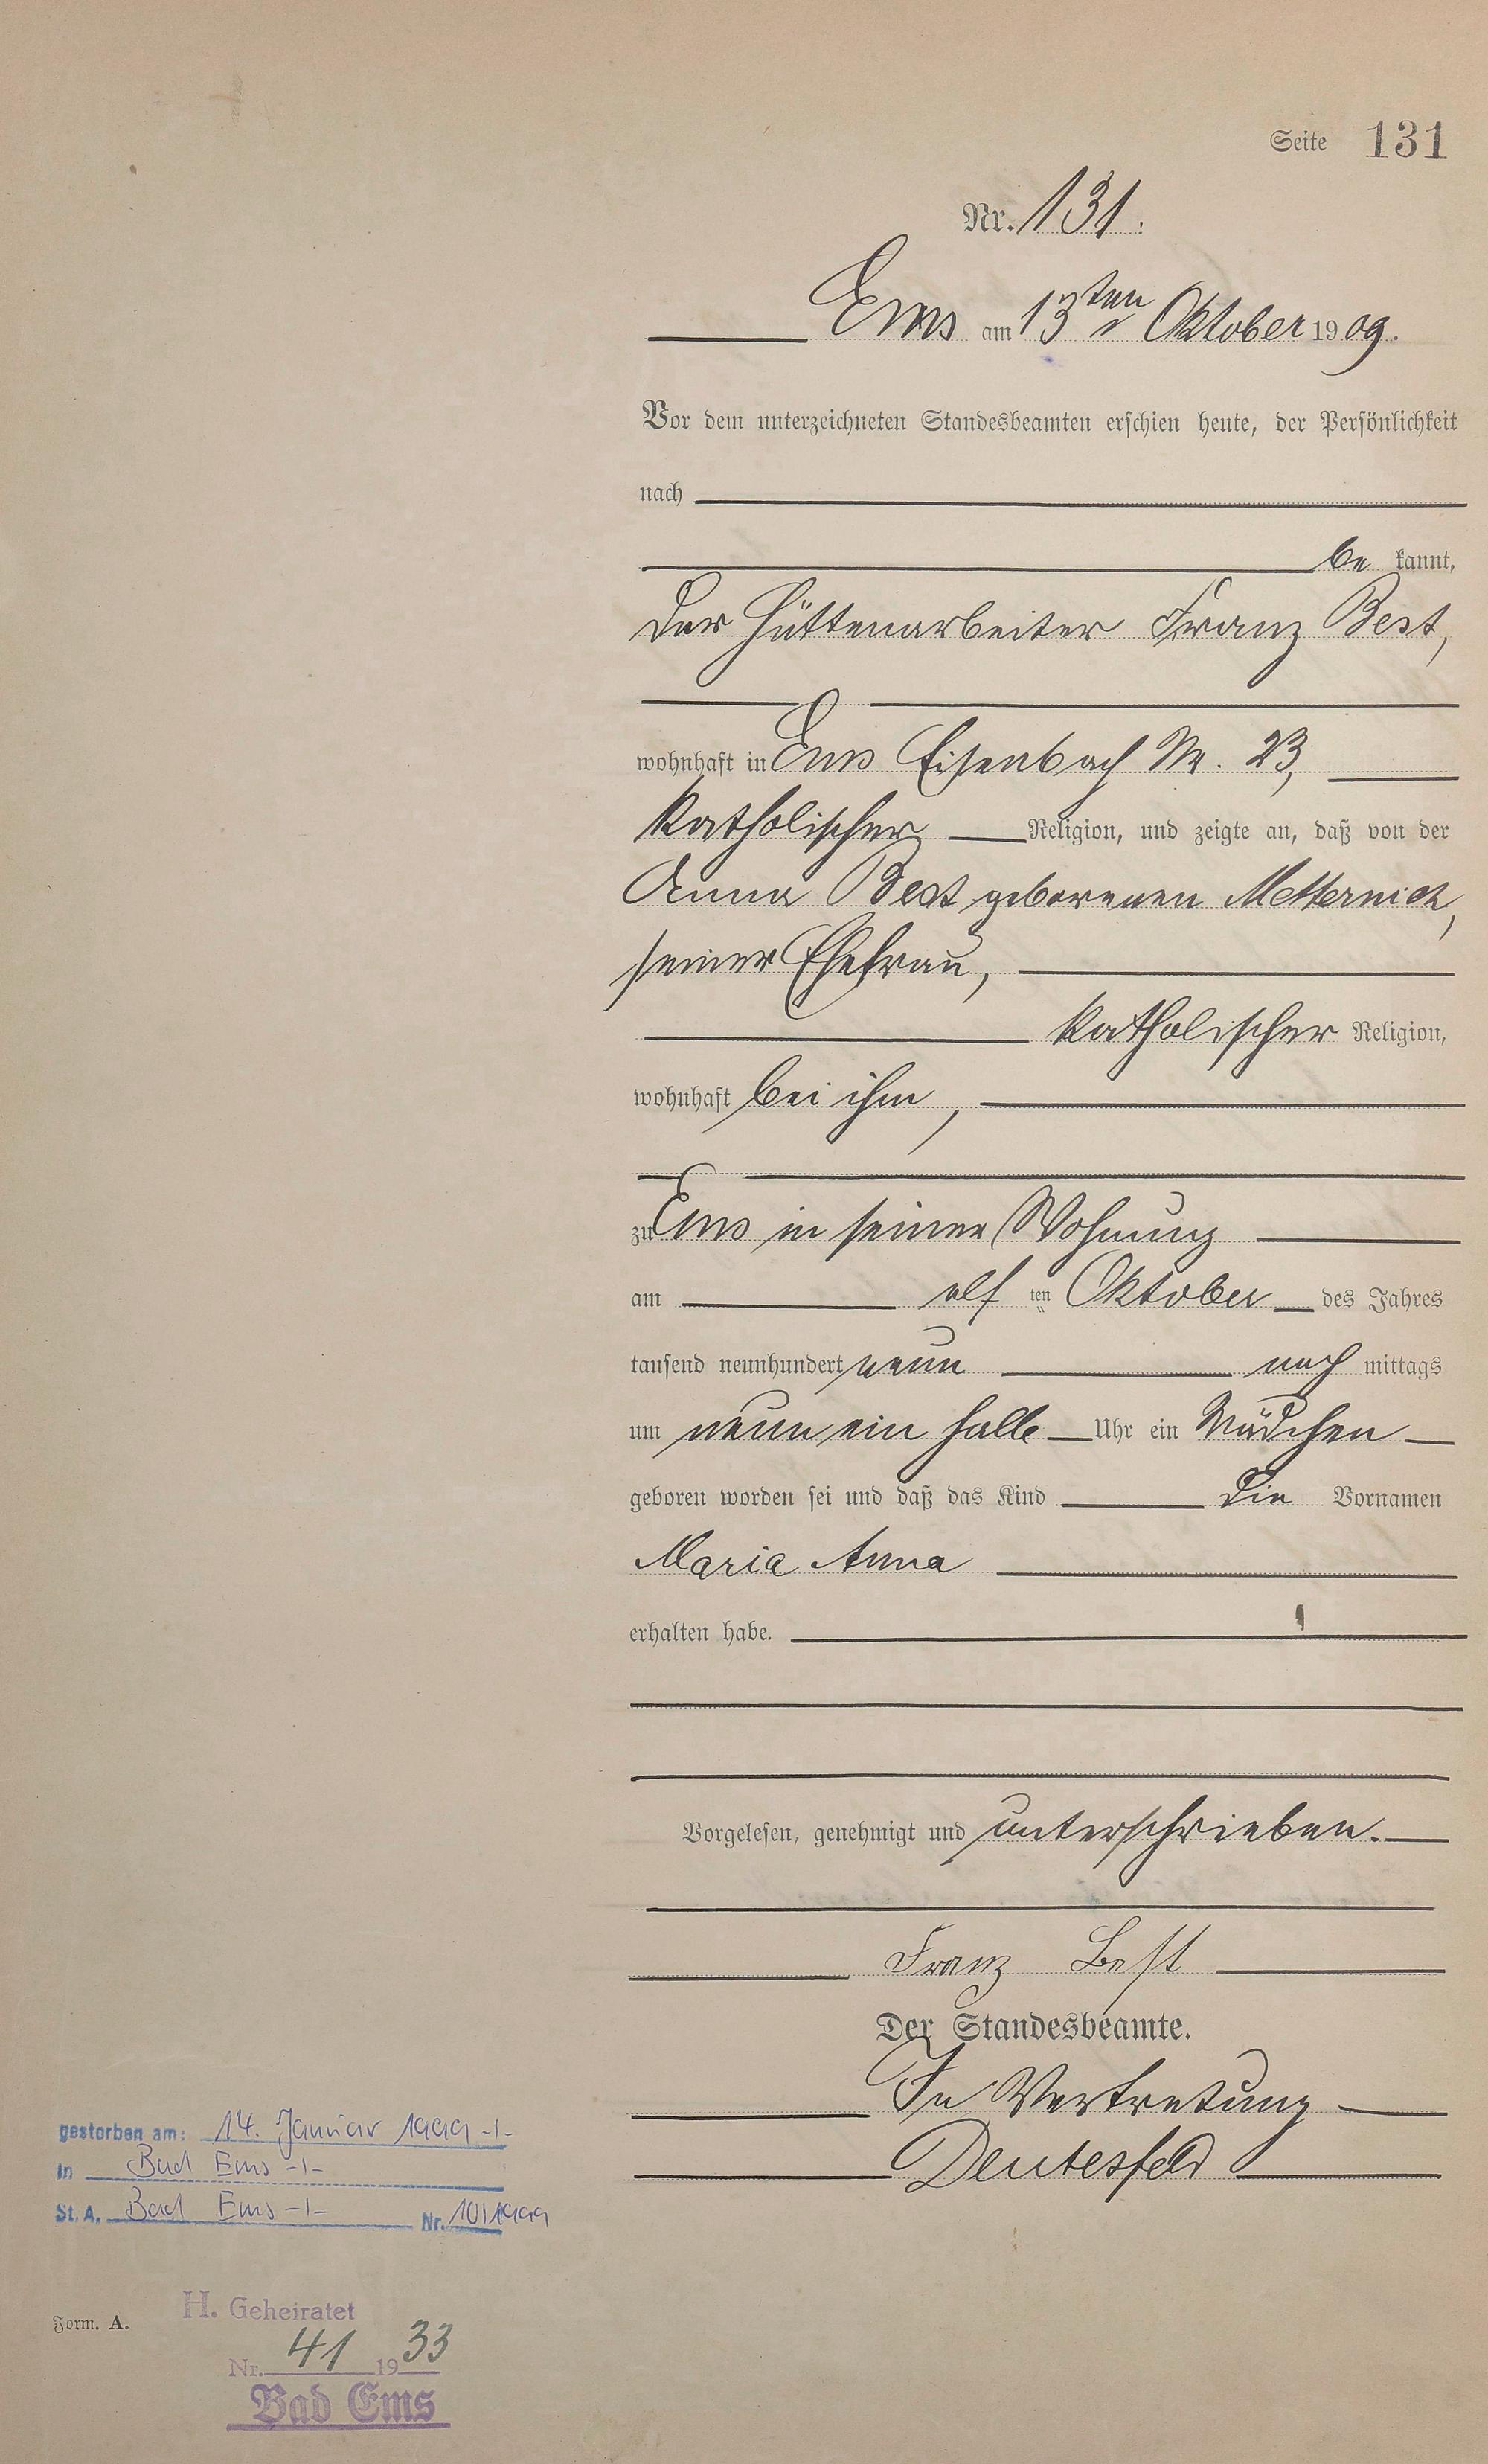 Seite 131
Nr. 131.
Ems am 13ten Oktober 1909.
Vor dem unterzeichneten Standesbeamten erschien heute, der Persönlichkeit
nach
be kannt,
der Hüttenarbeiter Franz Best,
wohnhaft in Ems Eisenbach Nr. 23,
katholischer Religion, und zeigte an, daß von der
Anna Best geborenen Metternich,
seiner Ehefrau,
katholischer Religion,
wohnhaft bei ihm,
zu Ems in seiner Wohnung
am elf ten Oktober des Jahres
tausend neunhundert neun nach mittags
um neun ein halb Uhr ein Mädchen
geboren worden sei und daß das Kind die Vornamen
Maria Anna
erhalten habe.
Vorgelesen, genehmigt und unterschrieben.
Franz Best
Der Standesbeamte.
In Vertretung
Deutesfeld
gestorben am: 14. Januar 1999 -/-
in Bad Ems -/-
St. A. Bad Ems -/- Nr. 10/1999
Form. A.
H. Geheiratet
Nr. 41 1933
Bad Ems